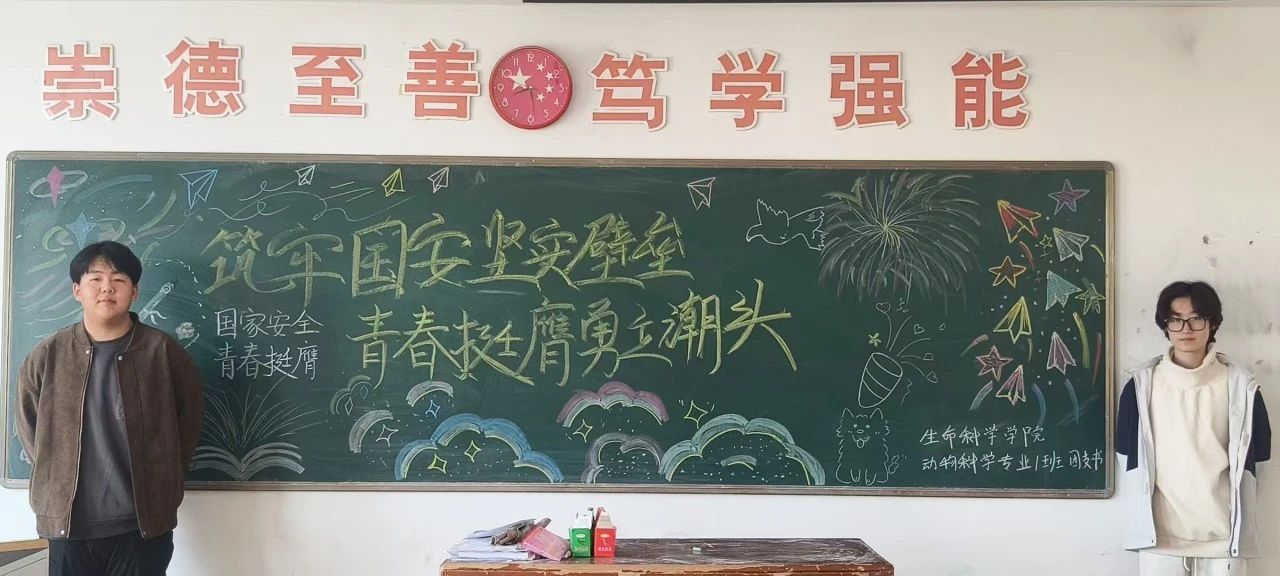 崇德至善 笃学强能
筑牢国安坚实壁垒
青春挺膺勇立潮头
国家安全
青春挺膺
生命科学学院
动物科学专业1班团支书